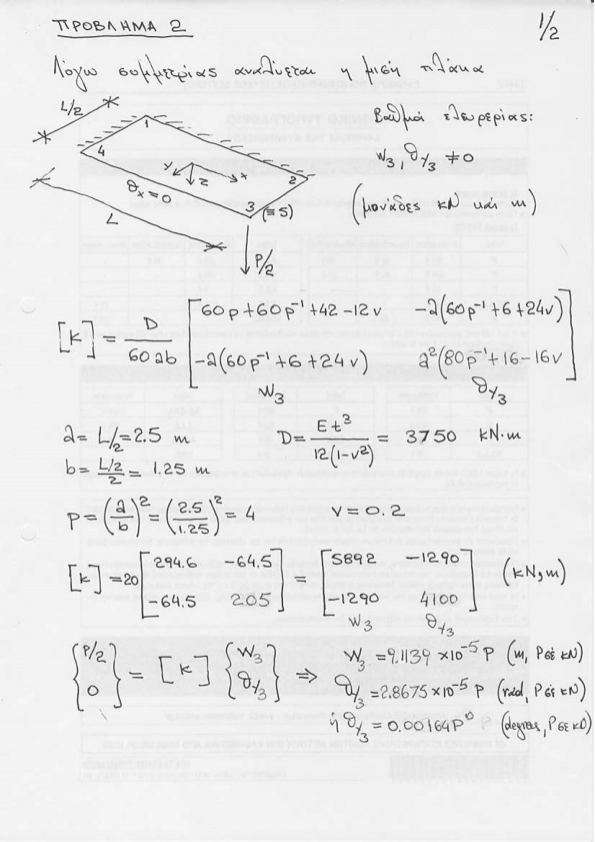 ΠΡΟΒΛΗΜΑ 2
1/2
Λόγω συμμετρίας αναλύεται η μισή πλάκα
L/2
1
4
2
3 (≡5)
y
x
z
θx=0
L
P/2
Βαθμοί ελευθερίας:
W3, θy3 ≠0
(μονάδες kN και m)
[K] = D/60ab [60p+60p⁻¹+42-12ν -a(60p⁻¹+6+24ν)
-a(60p⁻¹+6+24ν) a²(80p⁻¹+16-16ν]
W3 θy3
a= L/2=2.5 m D= Et³/12(1-ν²) = 3750 kN·m
b= L/2/2= 1.25 m
p=(a/b)²=(2.5/1.25)²=4 ν=0.2
[K]=20[294.6 -64.5 = [5892 -1290 (kN,m)
-64.5 205] -1290 4100]
W3 θy3
{P/2 0} = [K] {W3 θy3} ⇒ W3 =9.1139 ×10⁻⁵ P (m, P σε kN)
θy3=2.8675×10⁻⁵ P (rad, P σε kN)
ή θy3 =0.00164P⁰ (degrees, P σε kN)